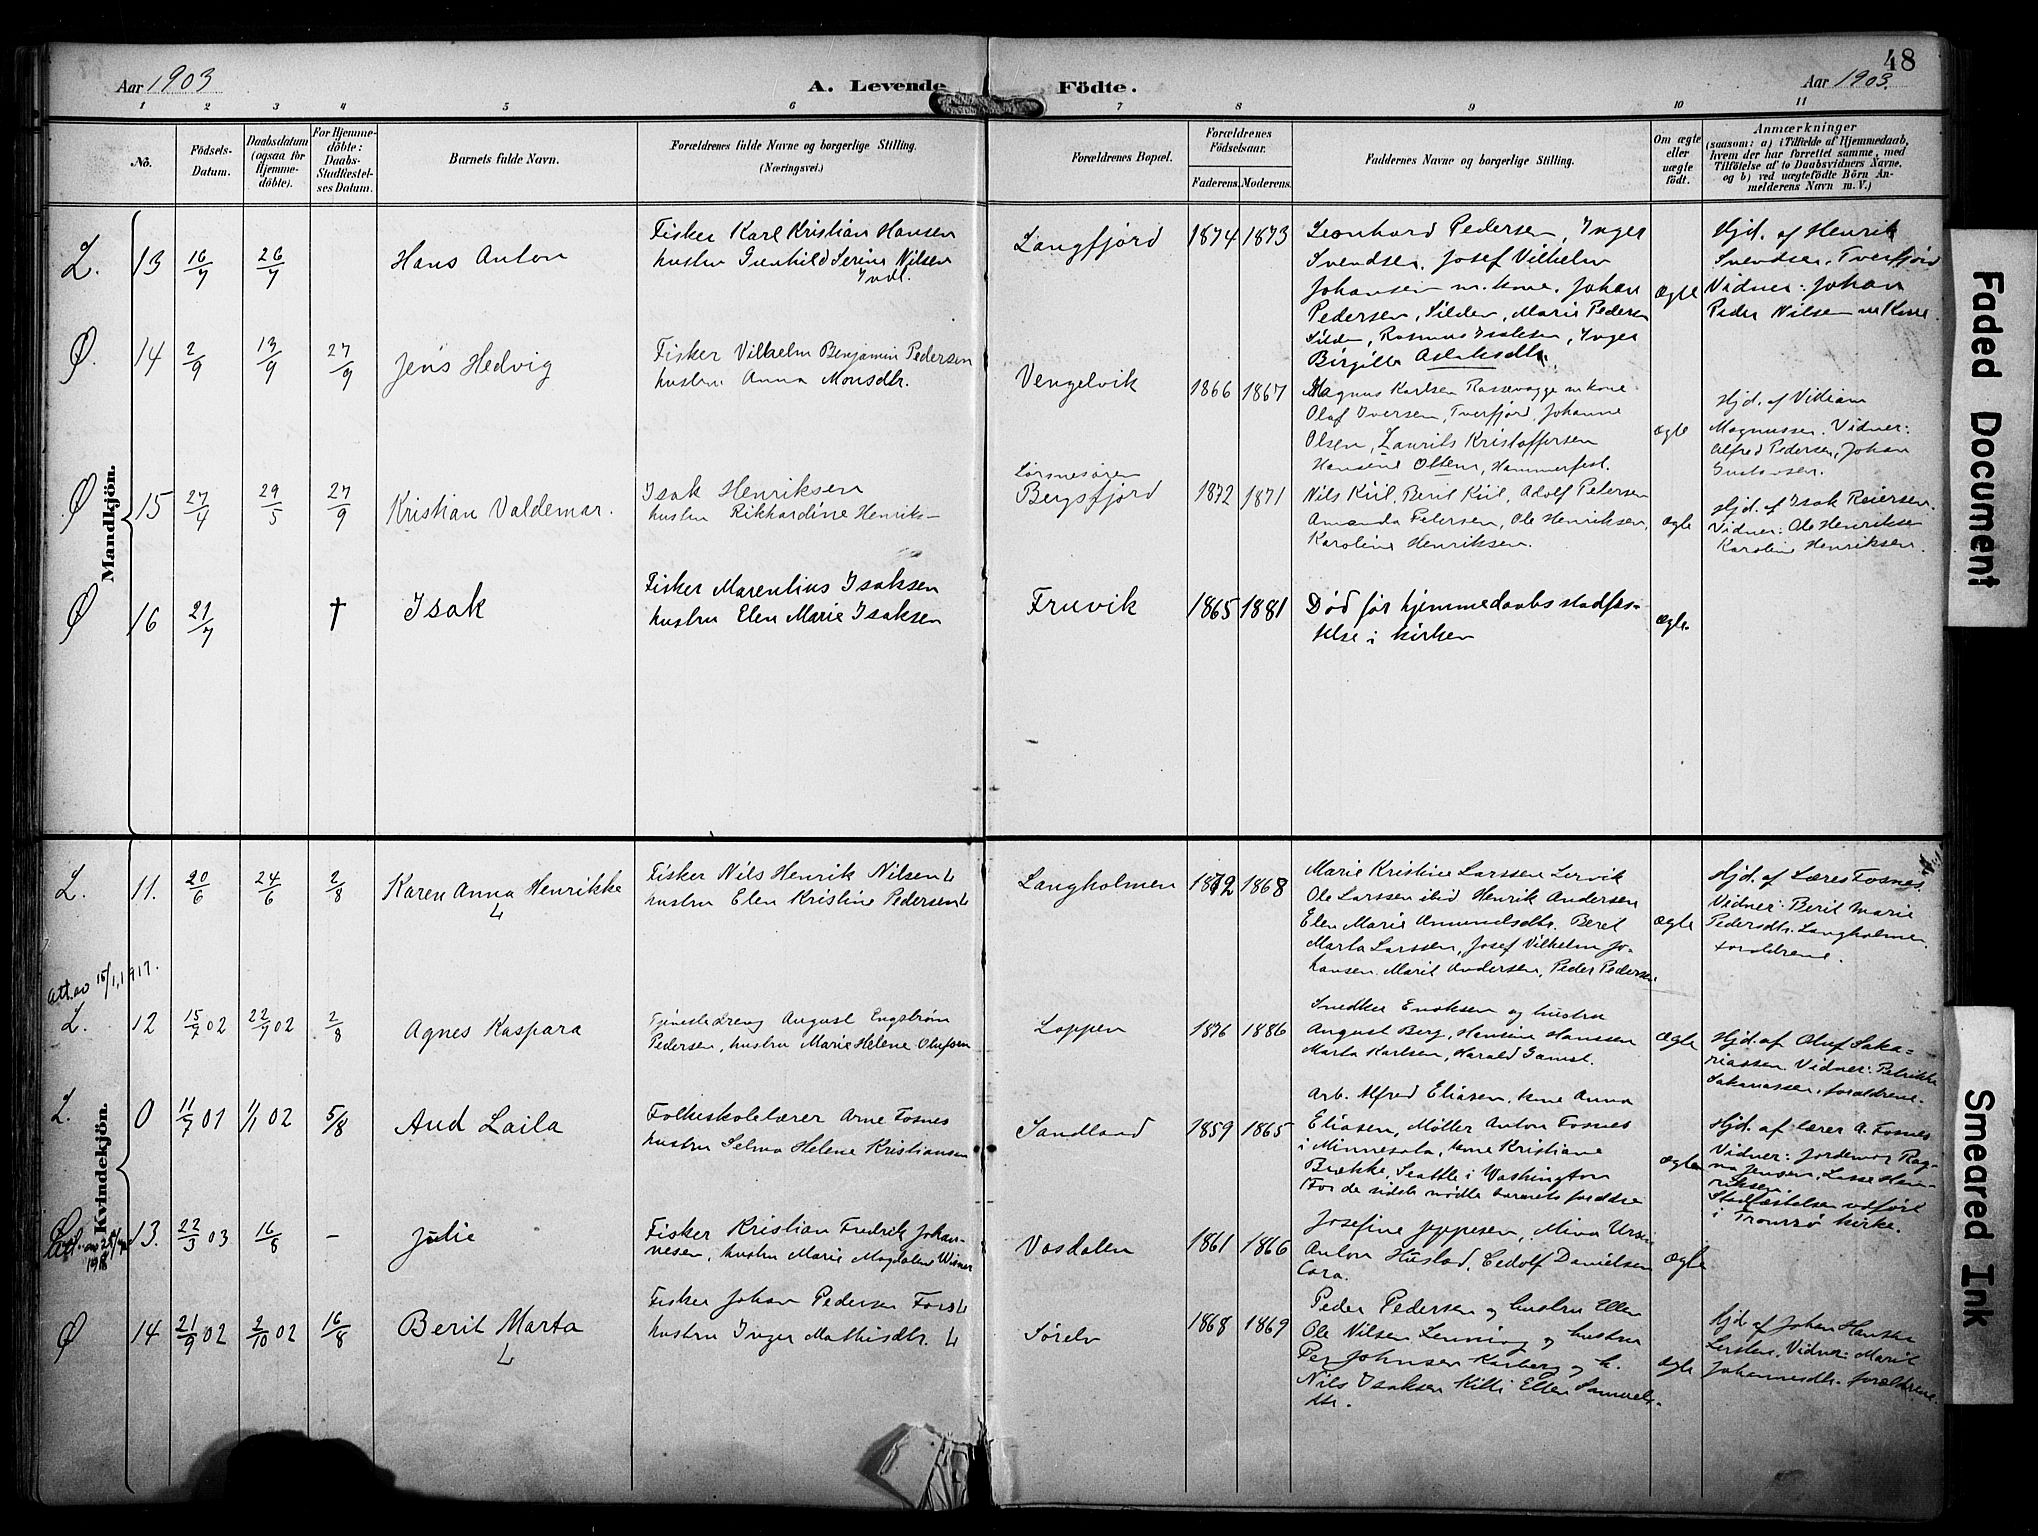 48
Aar 1903
A. Levende
Födte.
Aar 1903.
1 2 3 4 5 6 7 8 9 10 11
No.
Födsels-
Datum.
Daabsdatum
(ogsaa for
Hjemme-
döbte).
For Hjemme-
döbte:
Daabs-
Stadfæstel-
ses Datum.
Barnets fulde Navn.
Forældrenes fulde Navne og borgerlige Stilling.
(Næringsvei.)
Forældrenes Bopæl.
Forældrenes
Födselsaar.
Faderens. Moderens.
Faddernes Navne og borgerlige Stilling.
Om ægte
eller
uægte
födt.
Anmærkninger
(saasom: a) i Tilfælde af Hjemmedaab,
hvem der har forrettet samme, med
Tilföielse af to Daabsvidners Navne,
og b) ved uægtefödte Börn An-
melderens Navn m. V.)
Mandkjön.
L. 13 16/7 26/7
Hans Anton
Fisker Karl Kristian Hansen
hustru Gunhild Serine Nilsen
Langfjord
1874 1873
Leonhard Pedersen, Inger
Svendsen, Josef Vilhelm
Johansen m. kone, Johan
Pedersen, Silden, Marie Pedersen
Silden, Rasmus Isaksen, Inger
Birgitte Aslaksdtr.
ægte
Hjd. af Henrik
Svendsen, Tverfjord
Vidner: Johan
Peder Nilsen m Kone.
Ø. 14 2/9 13/9 27/9
Jens Hedvig
Fisker Vilhelm Benjamin Pedersen
hustru Anna Monsdtr.
Vengelvik
1866 1867
Magnus Karlsen m kone
Olaf Iversen, Tverfjord, Johanne
Olsen, Laurits Kristoffersen
Hansine Hammerfest.
ægte
Hjd. af
Magnussen. Vidner:
Alfred Pedersen, Johan
Gustavsen.
Ø 15 27/4 29/5 27/9
Kristian Valdemar.
Isak Henriksen
hustru Rikhardine Henriks-
Bergsfjord
1872 1871
Nils Kiil, Berit Kiil, Adolf Petersen
Amanda Petersen, Ole Henriksen,
Karoline Henriksen.
ægte
Hjd. af Isak Reiersen.
Vidner: Ole Henriksen
Karoline Henriksen.
Ø 16 21/7 †
Isak
Fisker Marentius Isaksen
hustru Elen Marie Isaksen
Fruvik
1865 1881
Død før hjemmedaabsstadfæs-
telse i kirken
ægte.
Kvindekjön.
L. 11. 20/6 24/6 2/8
Karen Anna Henrikke
Fisker Nils Henrik Nilsen
hustru Elen Kristine Pedersen
Langholmen
1872 1868
Marie Kristine Larssen Lervik
Ole Larssen ibid Henrik Andersen
Elen Marie Amundsdtr. Beret
Marta Larssen, Josef Vilhelm Jo-
hansen Marit Andersen, Peder Pedersen
ægte
Hjd. af Lærer Fosnes.
Vidner: Berit Marie
Pedersdtr. Langholmen
forældrene.
att. av 15/1, 1917.
L. 12 15/7 02 22/7 02 2/8
Agnes Kaspara
Tjenestedreng August Engstrøm
Pedersen, hustru Marie Helene Olufsen
Loppen
1876 1886
Snedker Enoksen og hustru
August Berg, Hansine Hanssen
Marta Karlsen, Harald Gamst.
Ægte
Hjd. af Oluf Saka-
riassen Vidner: Petrikke
Sakariassen, forældrene.
L. 0 11/7 01 1/1 02 5/8
Aud Laila
Folkeskolelærer Arne Fosnes
hustru Selma Helene Kristiansen
Sandland
1859 1865
Arb. Alfred Eliasen, kone Anna
Eliasen, Møller Anton Fosnes
i Minnesota, kone Kristiane
Brække, Seattle i Washington
For de sidste mødte barnets forældre
ægte
Hjd. af lærer A. Fosnes
Vidner: Jordemor Rag-
na Jensen, Lasse Hen-
riksen.
Stadfæstelsen udført
i Tromsø kirke.
13. 22/3 03 16/8 -
Julie
Fisker Kristian Fredrik Johan-
nesen, hustru Marie Magdalene
Vasdalen
1861 1866
Josefine Jeppesen, Mina
Anton Husted, Cedolf Danielsen
Cora.
ægte
Ø 14 21/9 02 2/10 02 16/8
Berit Marta
Fisker Johan Pedersen Fors
hustru Inger Mathisdtr.
Sørelv
1868 1869
Peder Pedersen og hustru Ellen
Ole Nilsen og hustru
Per Johnsen Karberg og h.
Nils Isaksen Kitti Ellen Samuels-
dtr.
ægte
Hjd. af Johan
Vidner: Marit
Johannesdtr. forældrene.
Faded Document
Smeared Ink